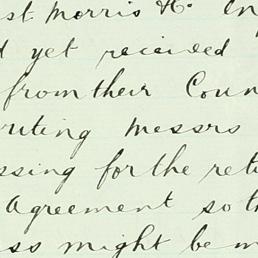 st Morris &
d yet received
from their Coun
ruting Messrs
ssing for the retu
Agreement so th
ss might be m